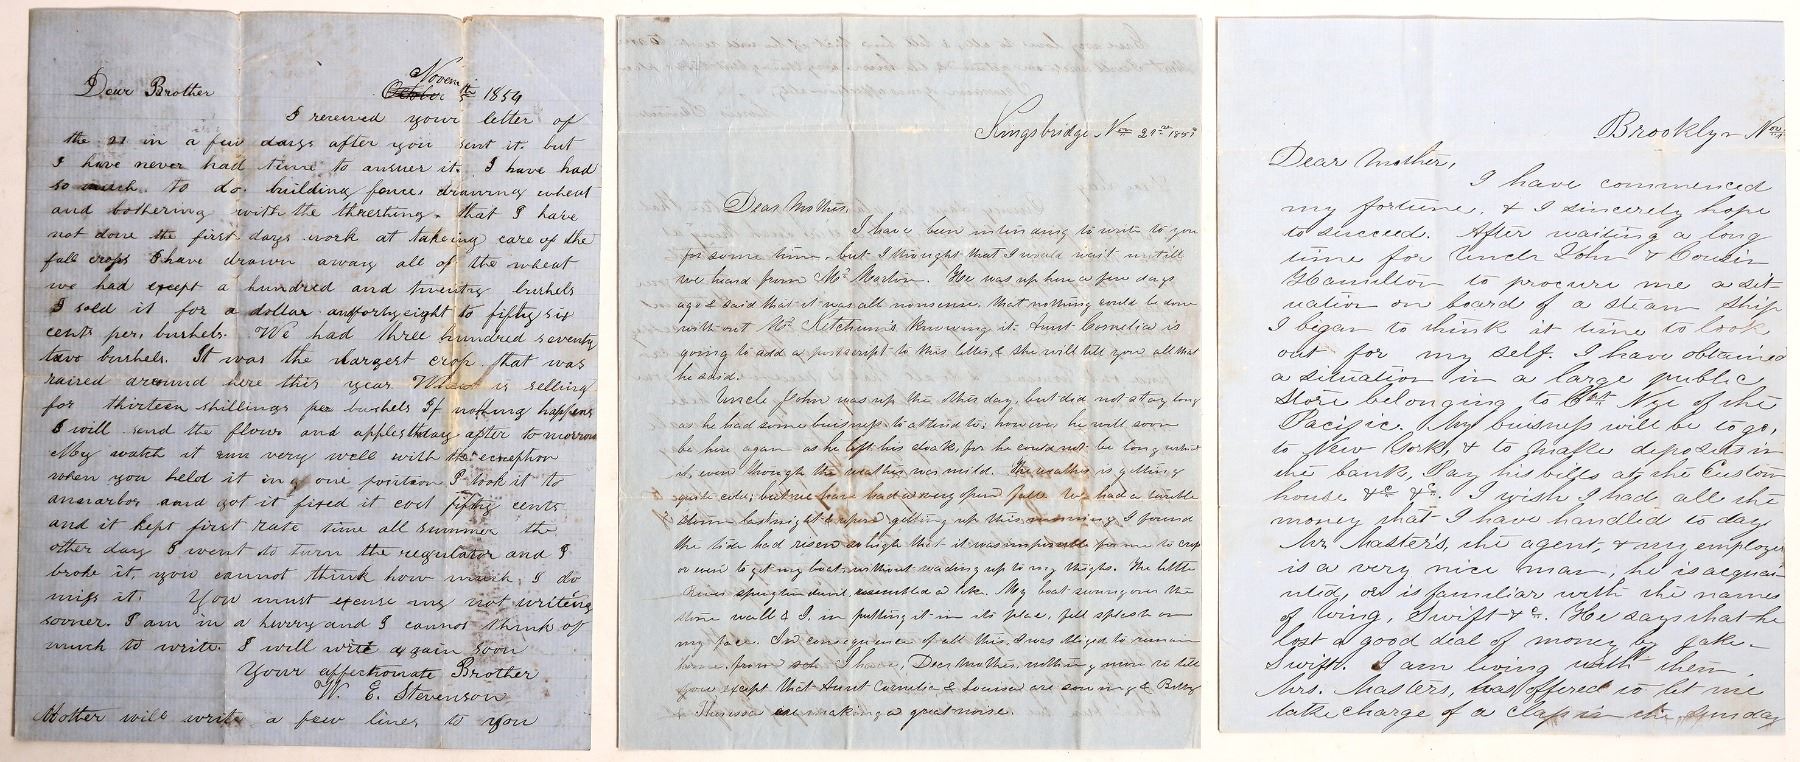 Dear Brother
Novem
October 5th 1854
I received your letter of
the 21 in a few days after you sent it. but
I have never had time to answer it. I have had
so much to do. building fence, drawing wheat
and bothering with the threshing. that I have
not done the first days work at takeing care of the
fall crops I have drawn away all of the wheat
we had except a hundred and twenty bushels
I sold it for a dollar and fortyeight to fifty six
cents per, bushels. We had three hundred seventy
two bushels. It was the largest crop that was
raised around here this year Wheat is selling
for thirteen shillings per bushels If nothing happens
I will send the flour and apples day after to morrow
My watch it run very well with the exception
when you held it in one position I took it to
annarbor and got it fixed it cost fifty cents
and it kept first rate time all summer the
other day I went to turn the regulator and I
broke it, you cannot think how much, I do
miss it. You must excuse my not writeing
sooner. I am in a hurry and I cannot think of
much to write. I will write again soon
Your affectionate Brother
W. E. Stevenson
Mother will write a few lines to you
Kingsbridge Nov 21st
Dear Mother,
I have been intending to write to you
for some time, but I thought that I would wait untill
we heard from Mr Martin. He was up here a few days
ago & said that it was all nonsense, that nothing could be done
without Mr. Ketchum's knowing it. Aunt Cornelia is
going to add a postscript to this letter, & she will tell you all that
he said.
Uncle John was up the this day, but did not stay long
as he had some buisness to attend to; however he will soon
be here again as he left his cloak, for he could not be long without
it, even though the weather was mild. The weather is getting
quite cold; but we have had a very open fall. We had a terrible
storm last night & upon getting up this morning I found
the tide had risen so high that it was impossible for me to cross
or even to get my boat, without wading up to my thighs. The little
River spuyten duivil resembled a lake. My boat swung over the
stone wall & I, in putting it in its place, fell splash on
my face. In consequence of all this, I was obliged to remain
home from I have, Dear Mother, nothing more to tell
you except that Aunt Cornelia & Louisa are sewing & Bettsy
Theressa are making a great noise.
Brooklyn Nov
Dear Mother,
I have commenced
my fortune, & I sincerely hope
to succeed. After waiting a long
time for Uncle John & Cousin
Hamilton to procure me a sit-
uation on board of a steam ship
I began to think it time to look
out for my self. I have obtained
a situation in a large public
store belonging to Capt Nye of the
Pacific. My buisness will be to go,
to New York, & to make deposits in
the bank, Pay his bills at the Custom
house &c &c. I wish I had all the
money that I have handled to day
Mr Master's, the agent, & my employer
is a very nice man; he is acquai
nted, or is familiar with the names
of King, Swift &c. He says that he
lost a good deal of money by Jake-
Swift. I am living with them
Mrs. Masters, has offered to let me
take charge of a class in the Sunday